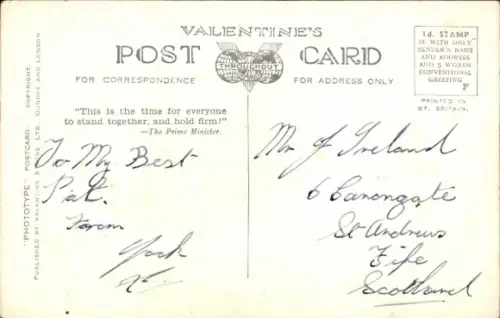 VALENTINE'S
POST CARD
THROUGHOUT
FOR CORRESPONDENCE
FOR ADDRESS ONLY
1d. STAMP
IF WITH ONLY
SENDER'S NAME
AND ADDRESS
AND 5 WORDS
CONVENTIONAL
GREETING
F
PRINTED IN
GT. BRITAIN.
"PHOTOTYPE" POSTCARD. COPYRIGHT.
PUBLISHED BY VALENTINE & SONS LTD. DUNDEE AND LONDON
"This is the time for everyone
to stand together, and hold firm!"
—The Prime Minister.
To My Best
Pal.
From
Jock
Mr J Ireland
6 Canongate
St Andrews
Fife
Scotland